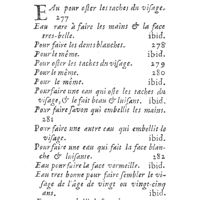 EAu pour oster les taches du visage.
277
Eau rare à faire les mains & la face
tres-belle. ibid.
Pour faire les dents blanches. 278
Pour le même. ibid.
Pour oster les taches du visage. 279
Pour le même. 280
Pour le même. ibid.
Pour faire une eau qui oste les taches du
visage, & le fait beau & luisant. ibid.
Pour faire savon qui embellit les mains.
281
Pour faire une autre eau qui embellit le
visage. ibid.
Pourfaire une eau qui fait la face blanche
& luisante. 282
Eau pour faire la face vermeille. ibid.
Eau tres bonne pour faire sembler le visage
de l'âge de vingt ou vingt-cinq
ans. ibid.